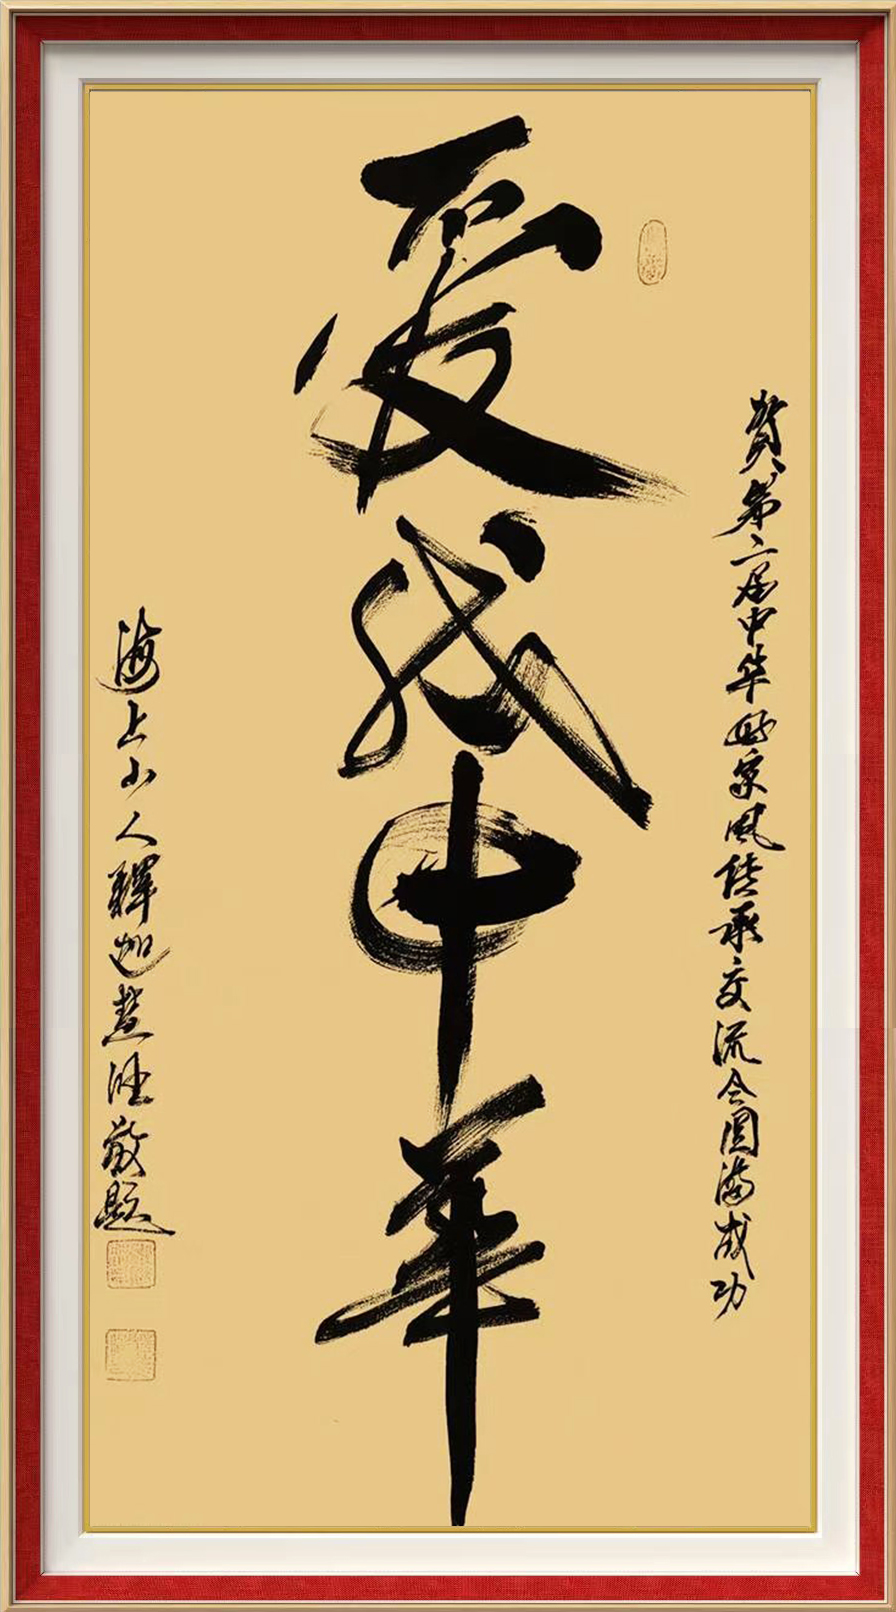 賀第二届中华好家风传承交流会圆满成功
爱我中華
海上山人釋迦慧敬题